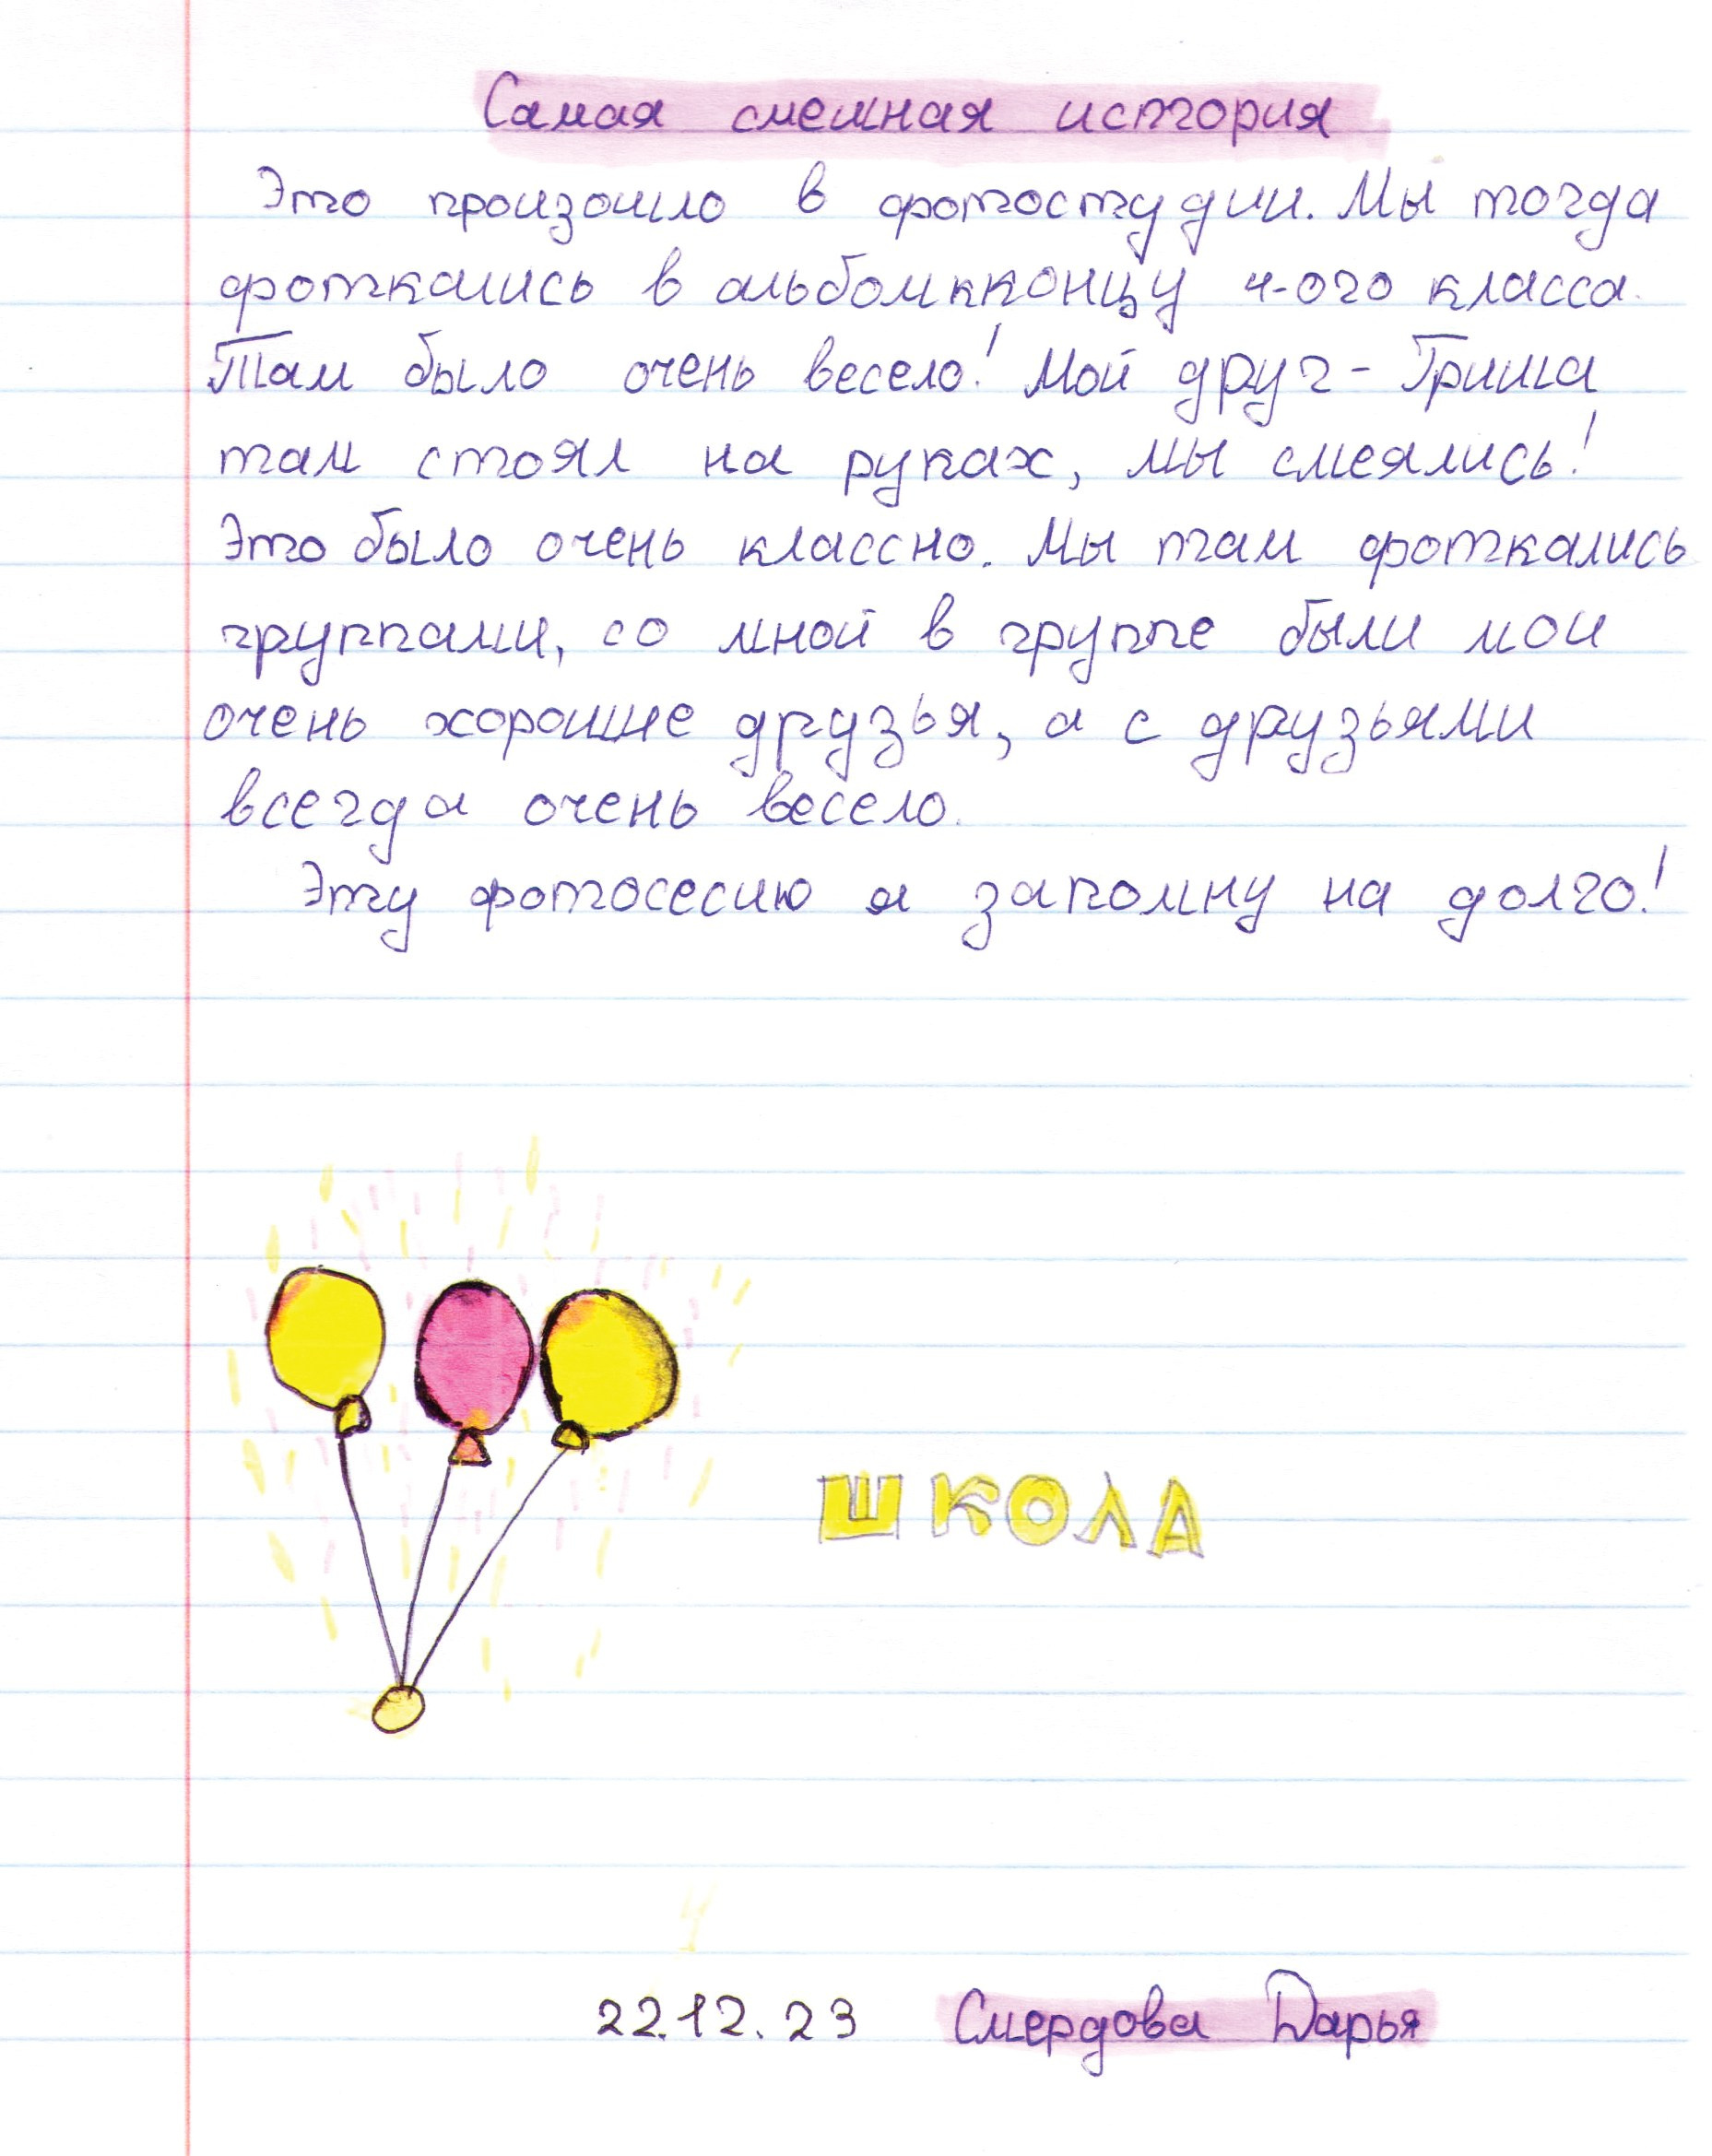 Самая смешная история
Это произошло в фотостудии. Мы тогда
фоткались в альбом к концу 4-ого класса.
Там было очень весело! Мой друг - Гриша
там стоял на руках, мы смеялись!
Это было очень классно. Мы там фоткались
группами, со мной в группе были мои
очень хорошие друзья, а с друзьями
всегда очень весело.
Эту фотосесию я запомну на долго!
ШКОЛА
22.12.23 Смердова Дарья